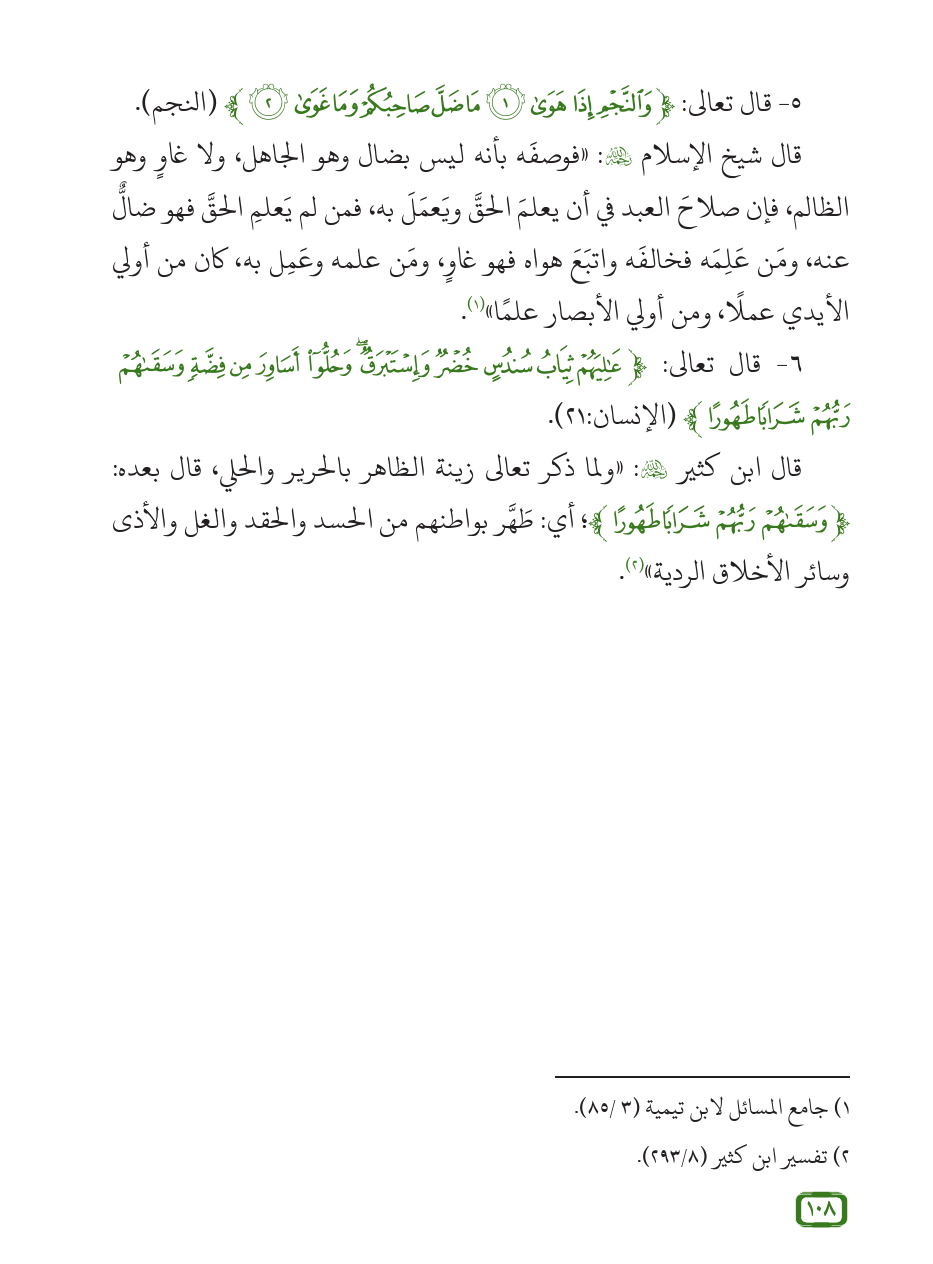 ٥- قال تعالى: ﴿ وَٱلنَّجْمِ إِذَا هَوَىٰ ١ مَا ضَلَّ صَاحِبُكُمْ وَمَا غَوَىٰ ٢ ﴾ (النجم).
قال شيخ الإسلام ﵀: «فوصفَه بأنه ليس بضال وهو الجاهل، ولا غاوٍ وهو
الظالم، فإن صلاحَ العبد في أن يعلمَ الحقَّ ويَعمَلَ به، فمن لم يَعلمِ الحقَّ فهو ضالٌّ
عنه، ومَن عَلِمَه فخالفَه واتبَعَ هواه فهو غاوٍ، ومَن علمه وعَمِل به، كان من أولي
الأيدي عملًا، ومن أولي الأبصار علمًا»(١).
٦- قال تعالى: ﴿ عَٰلِيَهُمْ ثِيَابُ سُندُسٍ خُضْرٌ وَإِسْتَبْرَقٌ ۖ وَحُلُّوٓا۟ أَسَاوِرَ مِن فِضَّةٍ وَسَقَىٰهُمْ
رَبُّهُمْ شَرَابًا طَهُورًا ﴾ (الإنسان:٢١).
قال ابن كثير ﵀: «ولما ذكر تعالى زينة الظاهر بالحرير والحلي، قال بعده:
﴿ وَسَقَىٰهُمْ رَبُّهُمْ شَرَابًا طَهُورًا ﴾؛ أي: طَهَّر بواطنهم من الحسد والحقد والغل والأذى
وسائر الأخلاق الردية»(٢).
١) جامع المسائل لابن تيمية (٣ /٨٥).
٢) تفسير ابن كثير (٢٩٣/٨).
١٠٨